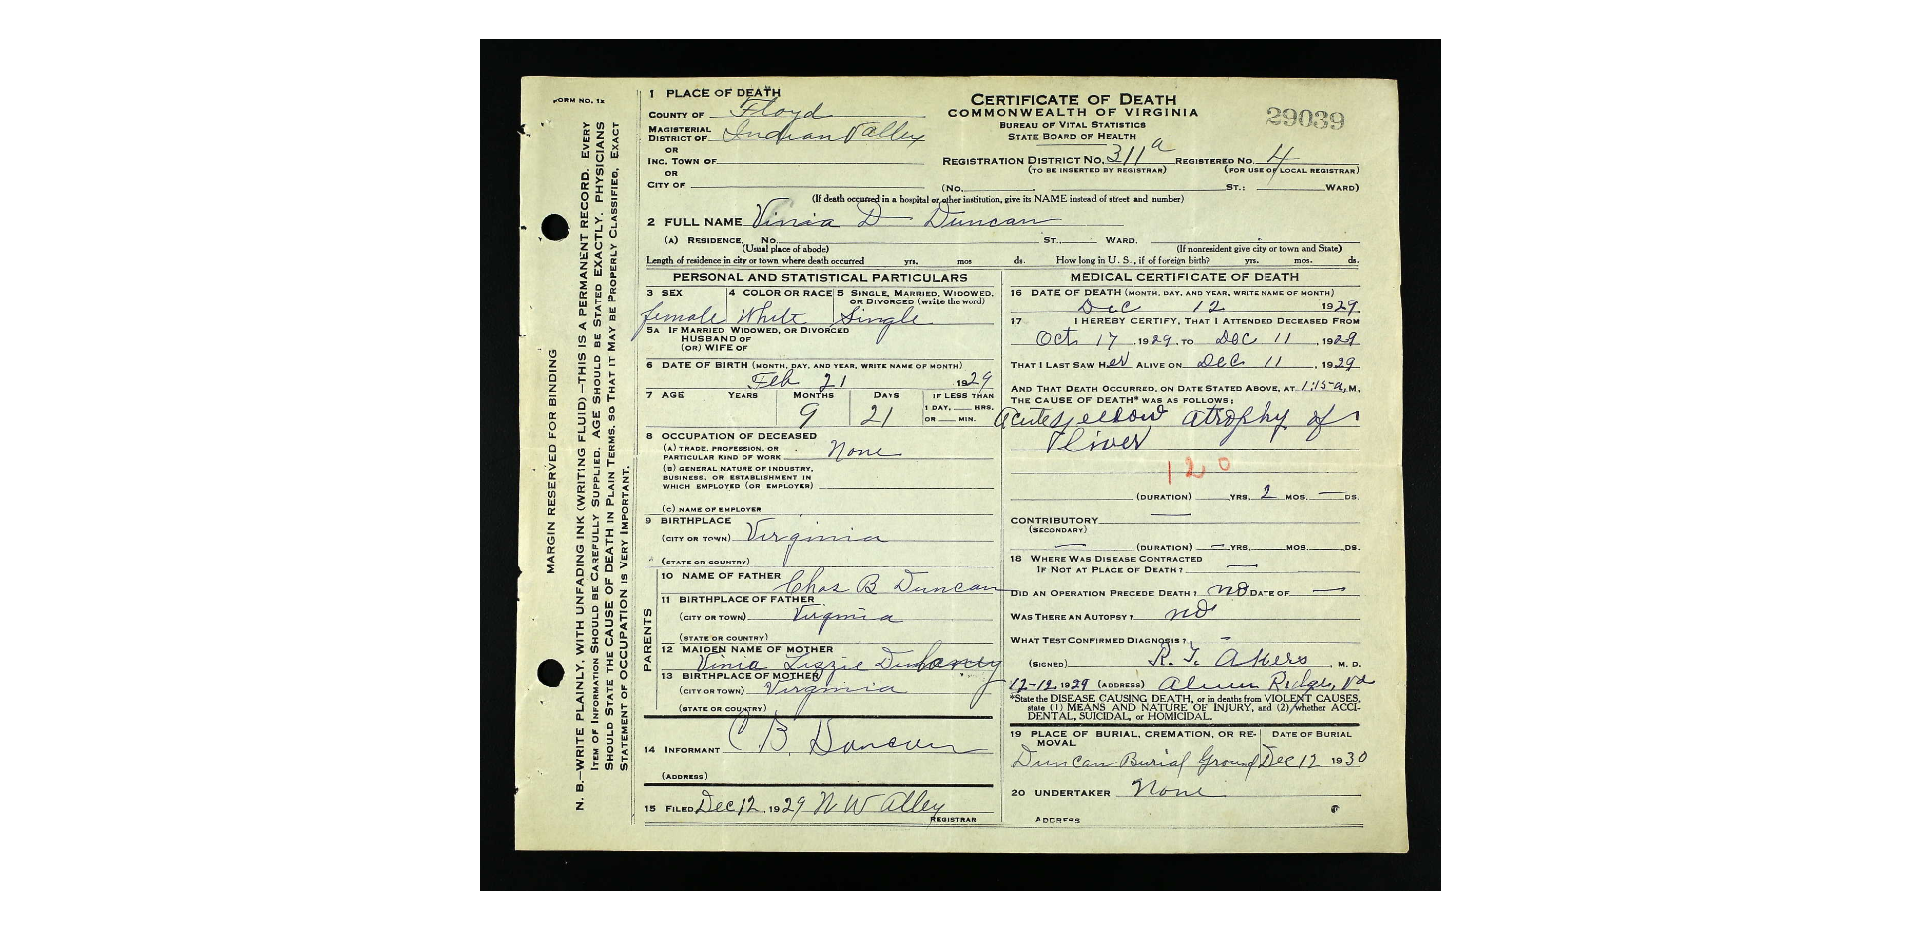 FORM NO. 1x
MARGIN RESERVED FOR BINDING
N. B.—WRITE PLAINLY, WITH UNFADING INK (WRITING FLUID)—THIS IS A PERMANENT RECORD. EVERY
ITEM OF INFORMATION SHOULD BE CAREFULLY SUPPLIED. AGE SHOULD BE STATED EXACTLY. PHYSICIANS
SHOULD STATE THE CAUSE OF DEATH IN PLAIN TERMS, SO THAT IT MAY BE PROPERLY CLASSIFIED. EXACT
STATEMENT OF OCCUPATION IS VERY IMPORTANT.
1 PLACE OF DEATH
COUNTY OF Floyd
MAGISTERIAL DISTRICT OF Indian Valley
OR
INC. TOWN OF
OR
CITY OF
CERTIFICATE OF DEATH
COMMONWEALTH OF VIRGINIA
BUREAU OF VITAL STATISTICS
STATE BOARD OF HEALTH
29039
REGISTRATION DISTRICT NO. 311a REGISTERED NO. 4
(TO BE INSERTED BY REGISTRAR) (FOR USE OF LOCAL REGISTRAR)
(No. ST.; WARD)
(If death occurred in a hospital or other institution, give its NAME instead of street and number)
2 FULL NAME Vinia D Duncan
(A) RESIDENCE. No. ST., WARD.
(Usual place of abode) (If nonresident give city or town and State)
Length of residence in city or town where death occurred yrs. mos ds. How long in U. S., if of foreign birth? yrs. mos. ds.
PERSONAL AND STATISTICAL PARTICULARS
3 SEX 4 COLOR OR RACE 5 SINGLE, MARRIED, WIDOWED,
OR DIVORCED (write the word)
female White Single
5A IF MARRIED WIDOWED, OR DIVORCED
HUSBAND OF
(OR) WIFE OF
6 DATE OF BIRTH (MONTH, DAY, AND YEAR, WRITE NAME OF MONTH)
Feb 21 1929
7 AGE YEARS MONTHS DAYS IF LESS THAN
1 DAY, HRS.
OR MIN.
9 21
8 OCCUPATION OF DECEASED
(A) TRADE, PROFESSION, OR
PARTICULAR KIND OF WORK None
(B) GENERAL NATURE OF INDUSTRY,
BUSINESS, OR ESTABLISHMENT IN
WHICH EMPLOYED (OR EMPLOYER)
(C) NAME OF EMPLOYER
9 BIRTHPLACE
(CITY OR TOWN) Virginia
(STATE OR COUNTRY)
PARENTS
10 NAME OF FATHER Chas B Duncan
11 BIRTHPLACE OF FATHER
(CITY OR TOWN) Virginia
(STATE OR COUNTRY)
12 MAIDEN NAME OF MOTHER
Vinia Lizzie
13 BIRTHPLACE OF MOTHER
(CITY OR TOWN) Virginia
(STATE OR COUNTRY)
14 INFORMANT C B Duncan
(ADDRESS)
15 FILED Dec 12, 1929 N W Alley
REGISTRAR
MEDICAL CERTIFICATE OF DEATH
16 DATE OF DEATH (MONTH, DAY, AND YEAR, WRITE NAME OF MONTH)
Dec 12 1929
17 I HEREBY CERTIFY, THAT I ATTENDED DECEASED FROM
Oct 17, 1929, TO Dec 11, 1929
THAT I LAST SAW Her ALIVE ON Dec 11, 1929
AND THAT DEATH OCCURRED, ON DATE STATED ABOVE, AT 1:15 a, M,
THE CAUSE OF DEATH* WAS AS FOLLOWS:
Acute yellow atrophy of
liver
120
(DURATION) YRS. 2 MOS. — DS.
CONTRIBUTORY —
(SECONDARY)
— (DURATION) — YRS. MOS. DS.
18 WHERE WAS DISEASE CONTRACTED
IF NOT AT PLACE OF DEATH? —
DID AN OPERATION PRECEDE DEATH? no DATE OF —
WAS THERE AN AUTOPSY? no
WHAT TEST CONFIRMED DIAGNOSIS? -
(SIGNED) Akers, M. D.
12-12, 1929 (ADDRESS) Alum Ridge, Va
*State the DISEASE CAUSING DEATH, or in deaths from VIOLENT CAUSES,
state (1) MEANS AND NATURE OF INJURY, and (2) whether ACCI-
DENTAL, SUICIDAL, or HOMICIDAL.
19 PLACE OF BURIAL, CREMATION, OR RE- DATE OF BURIAL
MOVAL
Duncan Burial Ground Dec 12 1930
20 UNDERTAKER None
ADDRESS